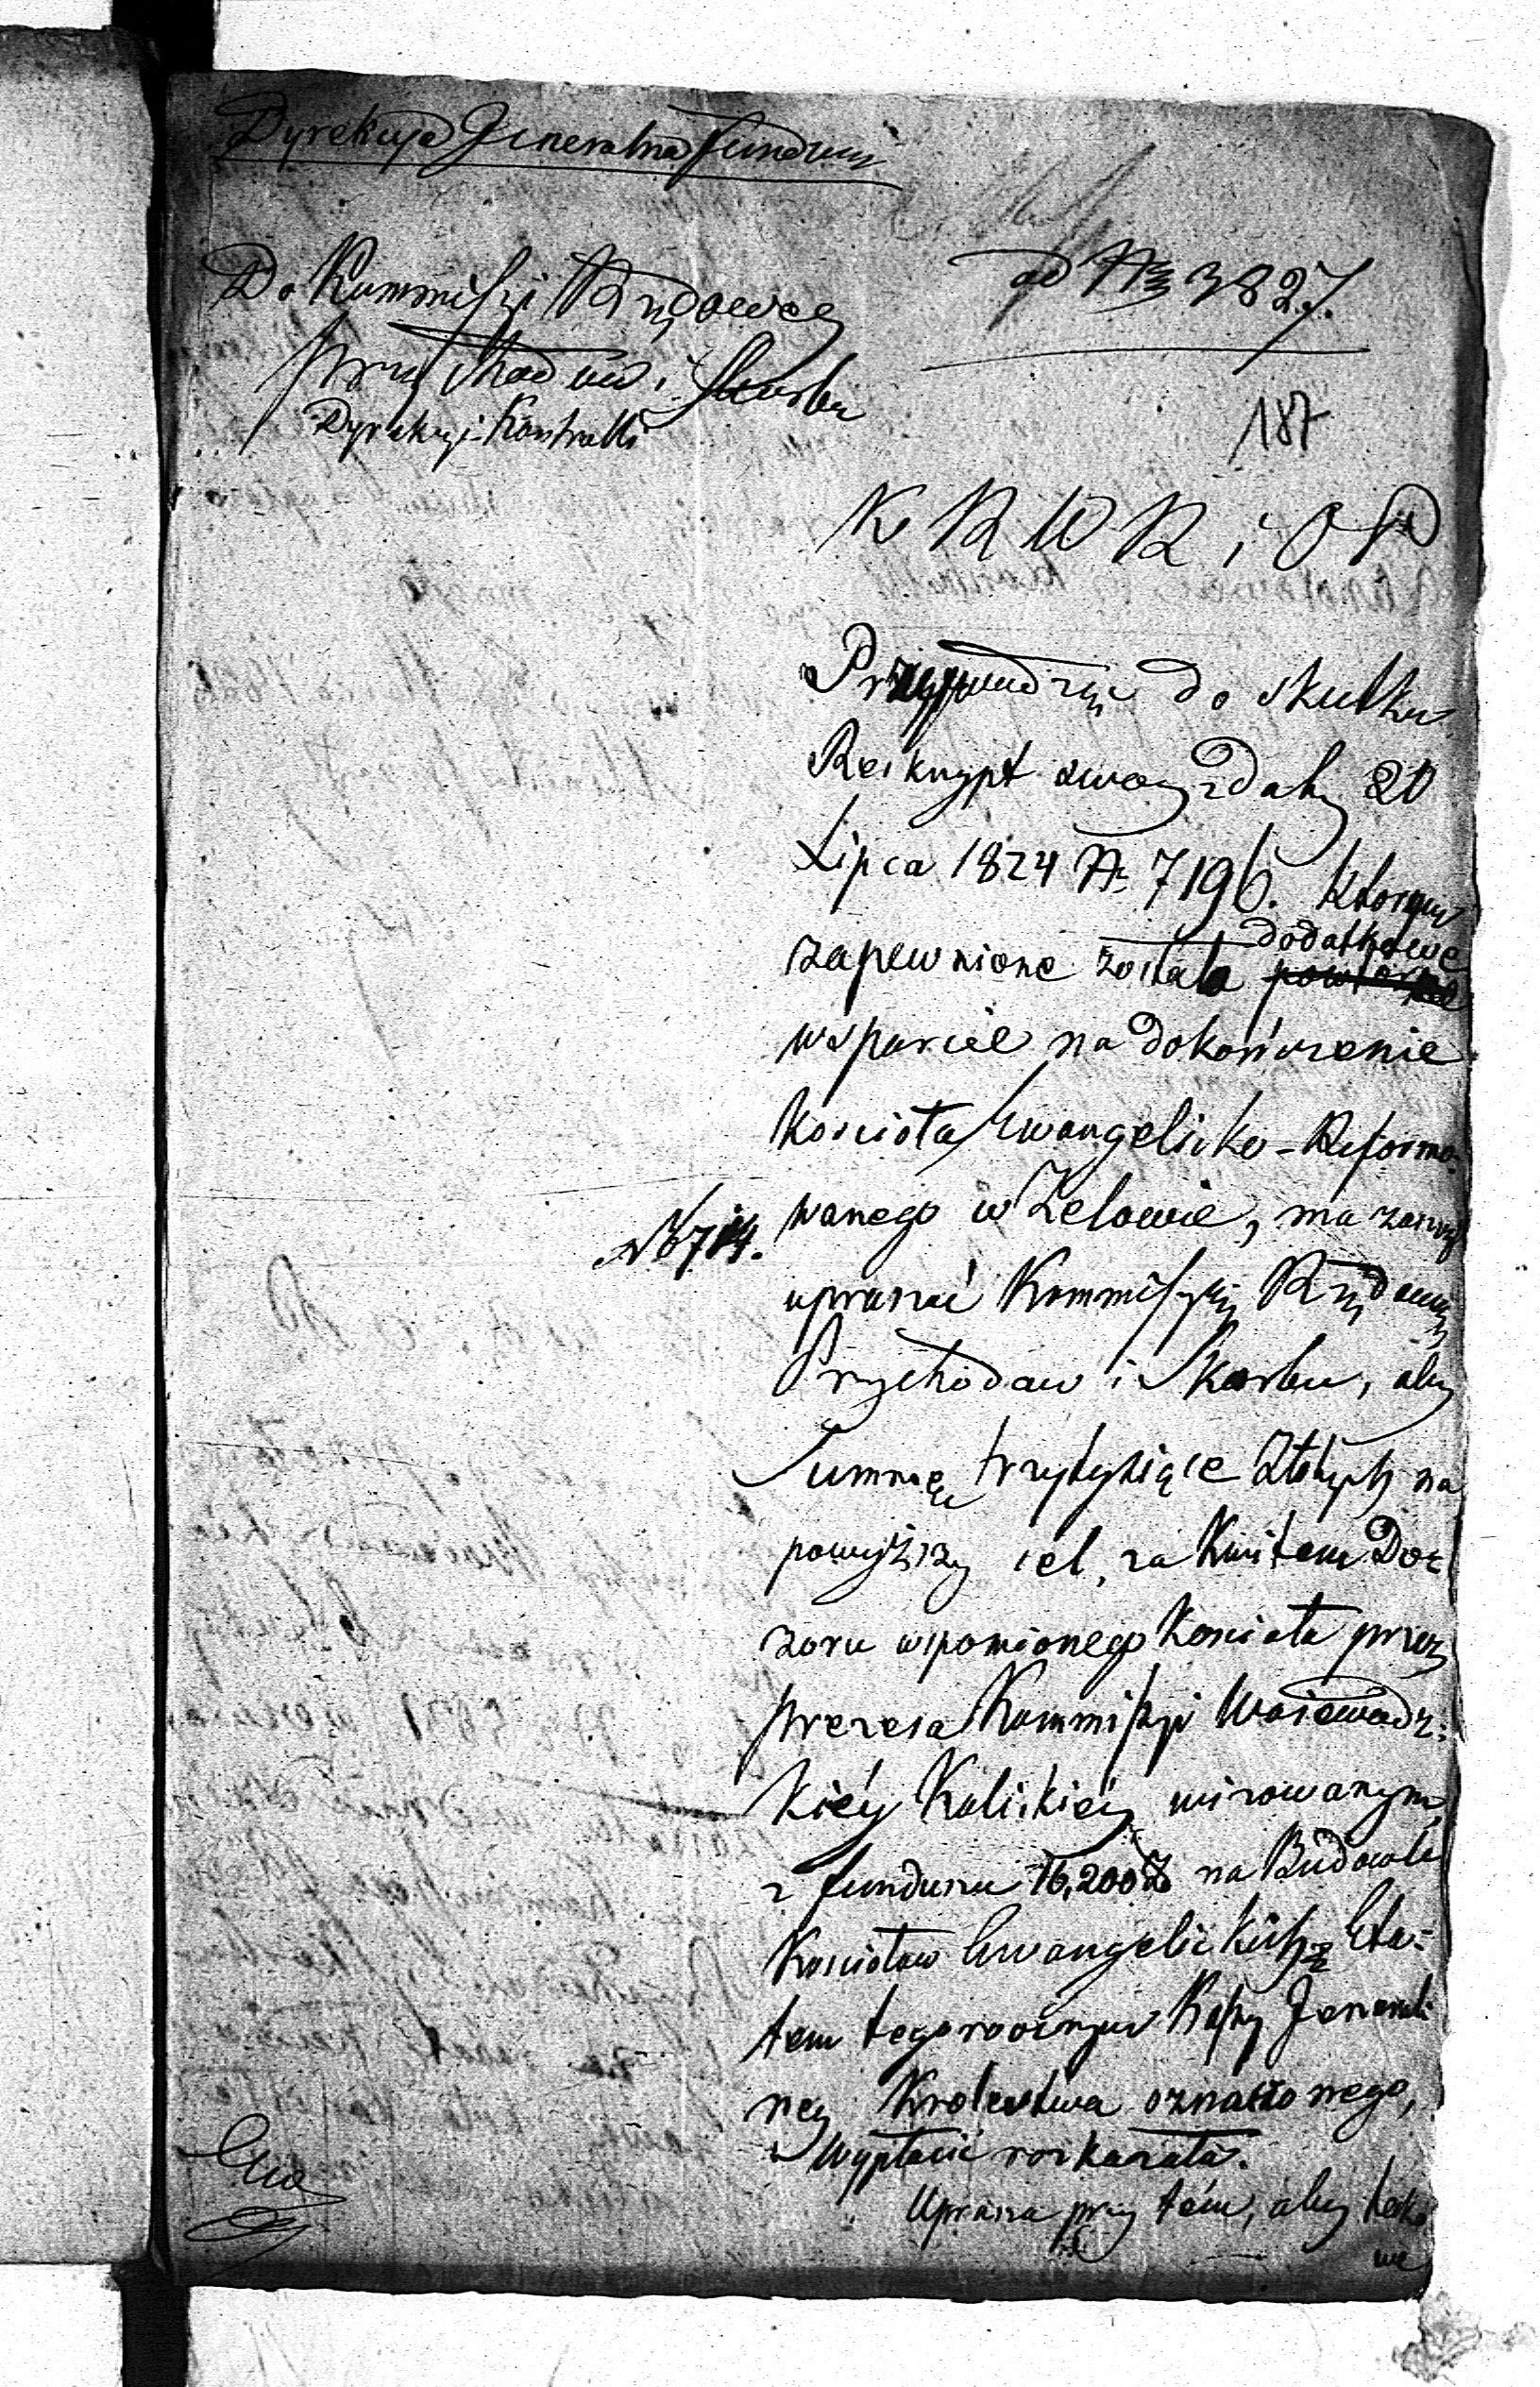 Dyrekcya Jeneralna Fundusz
Do Kommissyi Rządowey
Przychodów i Skarbu
Dyrekcyi Kontrolli
ad No 3827.
187
K R W R i O P
Przyprowadzaiąc do skutku
Reskrypt swoy z daty 20
Lipca 1824 No 7196. którym
zapewnione zostało dodatkowe
powtórne
wsparcie na dokończenie
Kościoła Ewangelicko-Reformo-
wanego w Zelowie, ma zaszczyt
N 6714.
upraszać Kommissyią Rządową
Przychodow i Skarbu, aby
Summę trzytysiące Złotych na
powyższy cel, za Kwitem Do-
zoru wspomionego Kościoła przez
prezesa Kommissyi Woiewodz-
kiéy Kaliskiéy wizowanym,
z funduszu 16,200 Zł na Budowle
Kościołow Ewangelickich Eta-
tem tegorocznym Kassy Jeneral
ney Krolestwa oznaczonego,
Wypłacić rozkazała.
Uprasza przy tém, aby tako
we